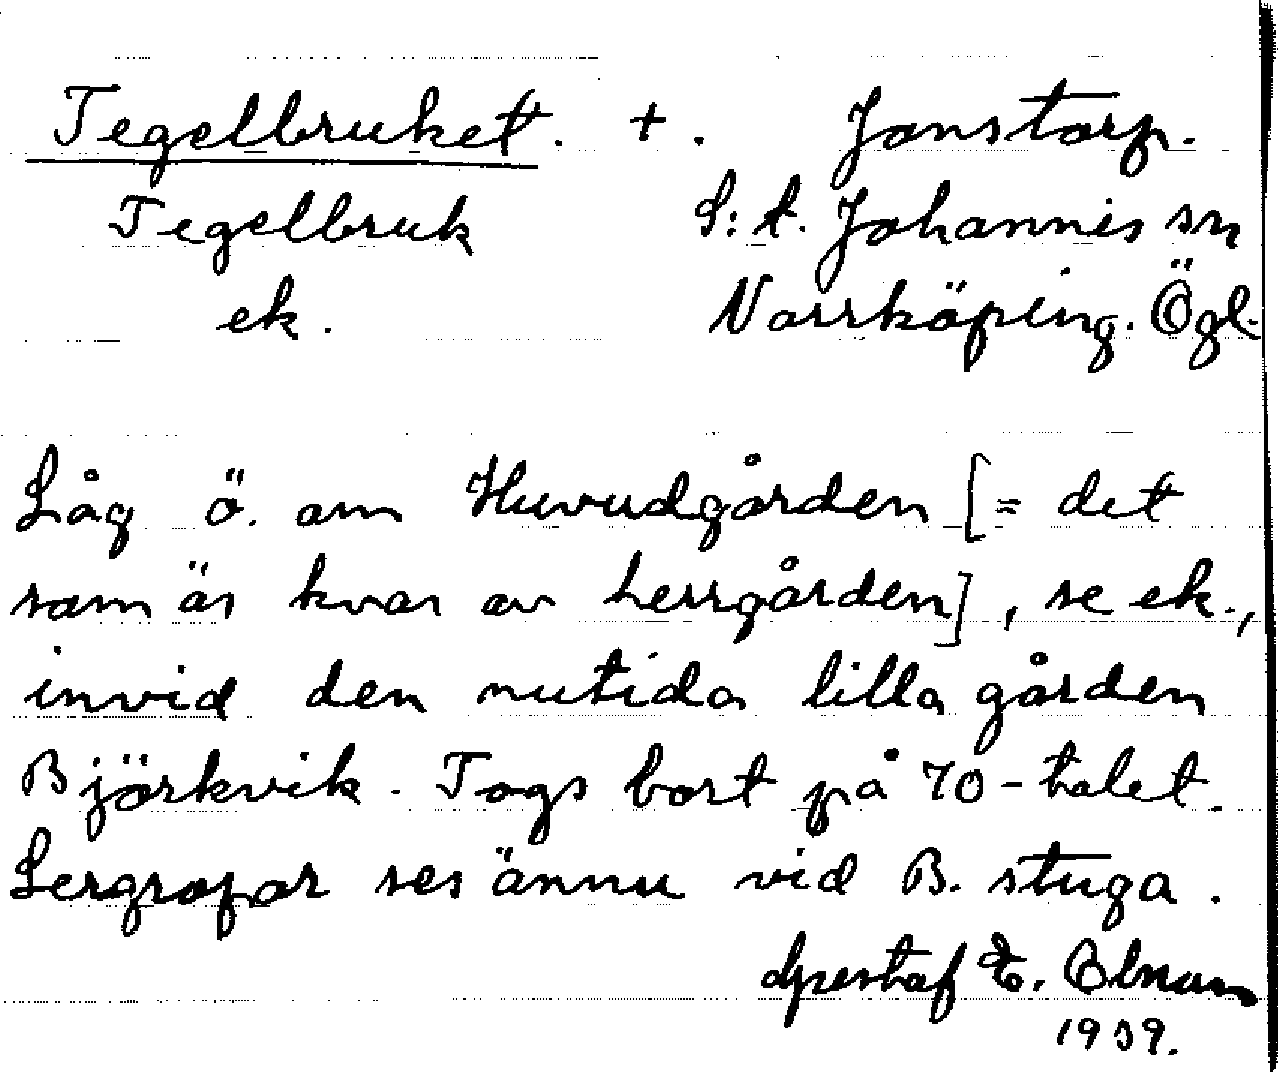 Tegelbruket. +. Jonstorp.
Tegelbruk S:t. Johannis sn
ek. Norrköping. Ögl.
Låg ö. om Huvudgården [= det
som är kvar av herrgården], se ek.,
invid den nutida lilla gården
Björkvik. Togs bort på 70-talet.
Lergropar ses ännu vid B. stuga.
Gustaf E.
1939.